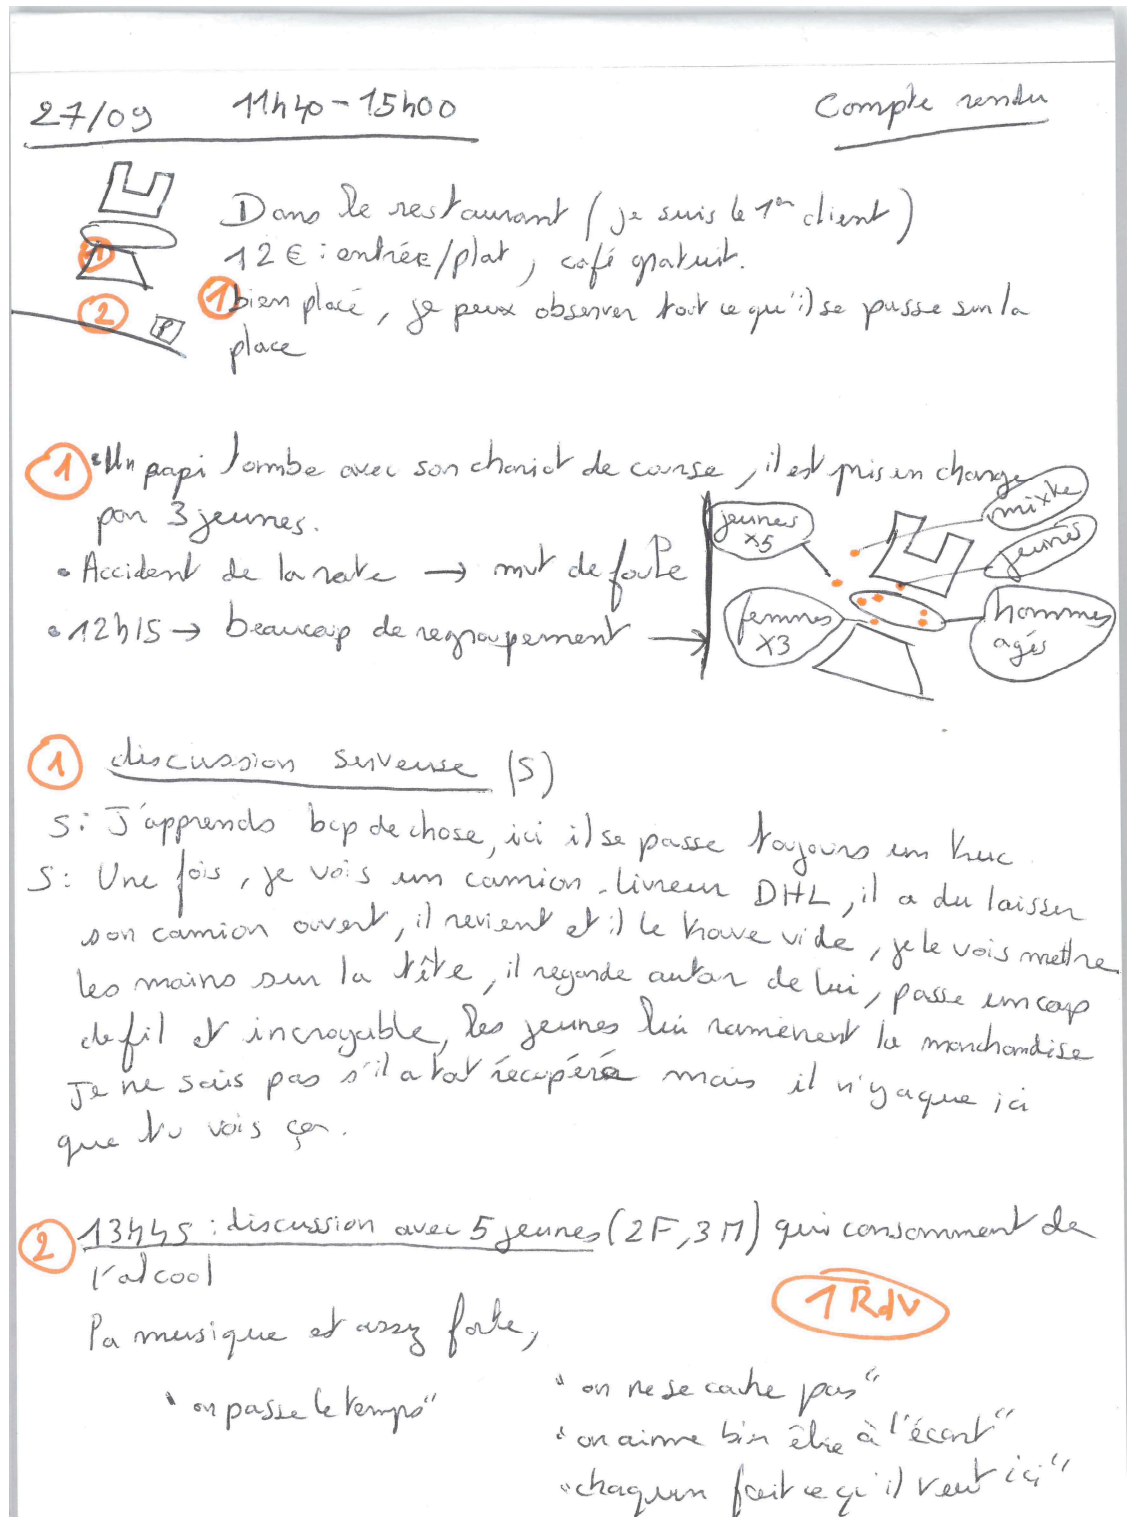 27/09 11h40-15h00 Compte rendu
Dans le restaurant (je suis le 1er client)
12€ : entrée/plat, café gratuit.
1
2
P
1 bien placé, je peux observer tout ce qu'il se passe sur la
place
1 • Un papi tombe avec son chariot de course, il est pris en charge
par 3 jeunes.
• Accident de la route → mvt de foule
• 12h15 → beaucoup de regroupement →
jeunes
x5
mixte
jeunes
femmes
x3
hommes
agés
1 discussion serveuse (S)
S: J'apprends bcp de chose, ici il se passe toujours un truc.
S: Une fois, je vois un camion-livreur DHL, il a du laisser
son camion ouvert, il revient et il le trouve vide, je le vois mettre
les mains sur la tête, il regarde autour de lui, passe un coup
de fil et incroyable, les jeunes lui ramènent la marchandise
Je ne sais pas s'il a tout récupéré mais il n'y a que ici
que tu vois ça.
2 13h45 : discussion avec 5 jeunes (2F, 3M) qui consomment de
l'alcool
1 Rdv
la musique et assez forte,
"on passe le temps"
"on ne se cache pas"
"on aime bien être à l'écart"
"chaqun fait ce qu'il veut ici"